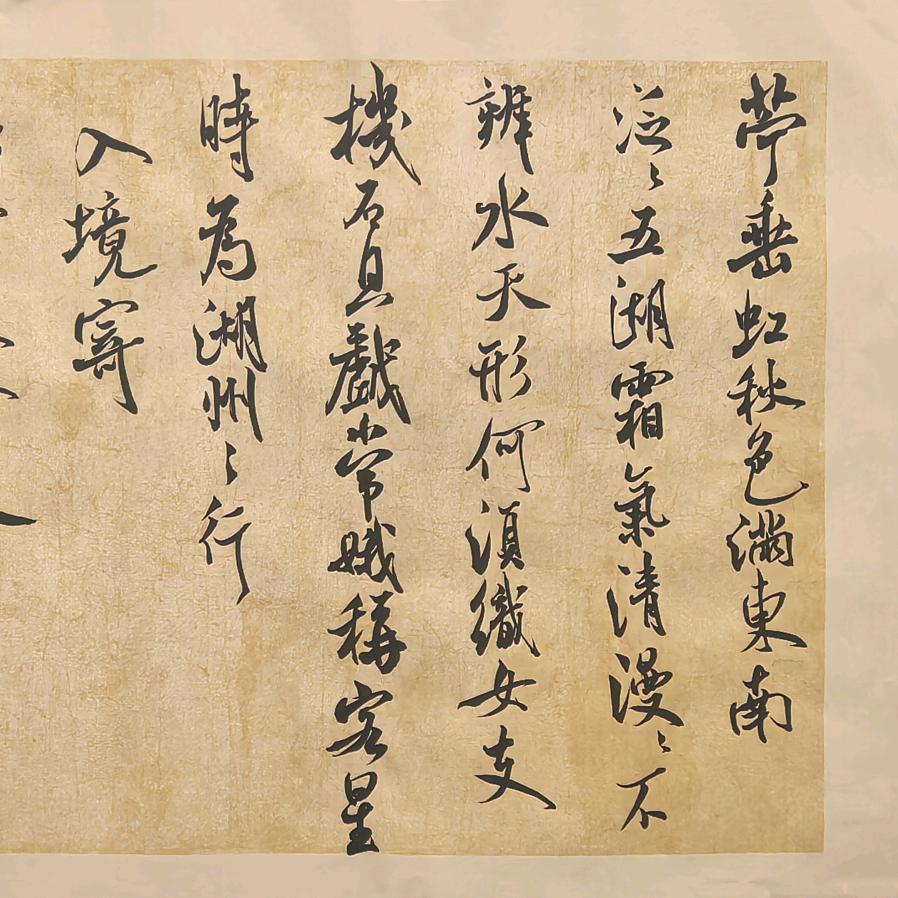 苧垂虹秋色滿東南
泛〻五湖霜氣清漫〻不
辨水天形何須織女支
機石且戲常娥稱客星
時為湖州之行
入境寄